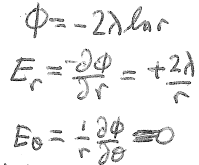 ϕ = -2λ ln r
E_r = -∂ϕ/∂r = +2λ/r
E_θ = -1/r ∂ϕ/∂θ = 0